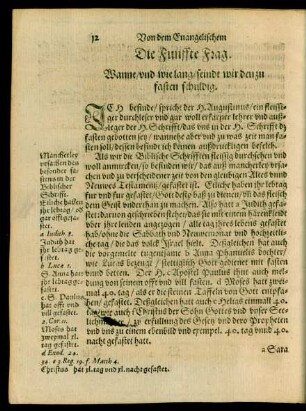 12 Von dem Euangelischem
Die Funffte Frag.
Wanne/vnd wie lang/ seindt wir den zu
fasten schuldig.
ICH befinde/ spricht der H. Augustinus/ ein fleissi-
ger durchleser vnd gar woll erfarner lehrer vnd auß-
leger der H. Schrifft/ das vns in der H. Schrifft dz
fasten gebotten sey/ wanneher aber vnd zu was zeit man fa-
sten soll/ dessen befinde ich keinen außdrucklichen befelch.
Als wir die Biblische Schrifften fleissig durchsehen vnd
woll anmercken/ so befinden wir/ das auff mancherley weiß
vnd zu verscheidener zeit von den glaubigen Altes vnnd
Neuwes Testaments/ gefastet ist. Etliche haben ihr lebtag
fur vnd fur gefastet/ Gott
dem Geist vnderthan zu machen. Also hatt a Judith gefa-
stet: darnon geschrieben stehet/ das sie mit einem härenkleidt
vber ihr lenden angezogen/ alle tag ihres lebens gefastet
hab/ sonder die Sabbath vnd Neuwemonat vnd hochzeitli-
che tag/ die das volck Israel hielt. Deßgleichen hat auch
die vorgemelte b Anna Phanuelis dochter/
wie Lucas bezeugt/ Gott gedienet mit fasten
vnnd betten. Der H. c Apostel Paulus thut auch mel-
dung von seinem offt vnd vill fasten. d Moses hatt zwey
mal 40. tag/ als er die steinen Taffeln von Gott emp-
/ gefastet. Deßgleichen hatt auch e Helias einmall 40.
tag/ wie auch f Christus der Sohn Gottes vnd vnser See-
/ zu erfullung des Gesetz vnd dero Propheten
vnd vns zu einem ebenbild vnd exempel 40. tag vnnd 40.
nacht gefastet hatt.
Mancherley
besonder fa-
stens in der
Biblischer
Schrifft.
Etliche haben
ihr lebtag/
gefa-
stet.
a Iudith 8.
Judith hat
ihr lebtag ge-
fastet.
b Luce 2.
S. Anna hatt
ihr lebtag ge-
fastet.
c S. Paulus
hat offt vnd
vill gefastet.
2. Cor. 11.
Moses hat
zweymal xl.
tag gefastet.
d Exod. 24.
34. e 3. Reg. 19. f. Matth 4.
Christus hat xl. tag vnd xl. nacht gefastet.
a Sara